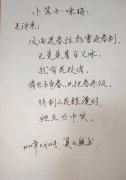 卜算子·咏梅
毛泽东
风雨送春归,飞雪迎春到
已是悬崖百丈冰
犹有花枝俏
俏也不争春,只把春来报
待到山花烂漫时
她在丛中笑